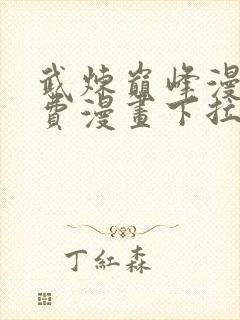 武煉巔峰漫
費漫畫下拉
丁紅森